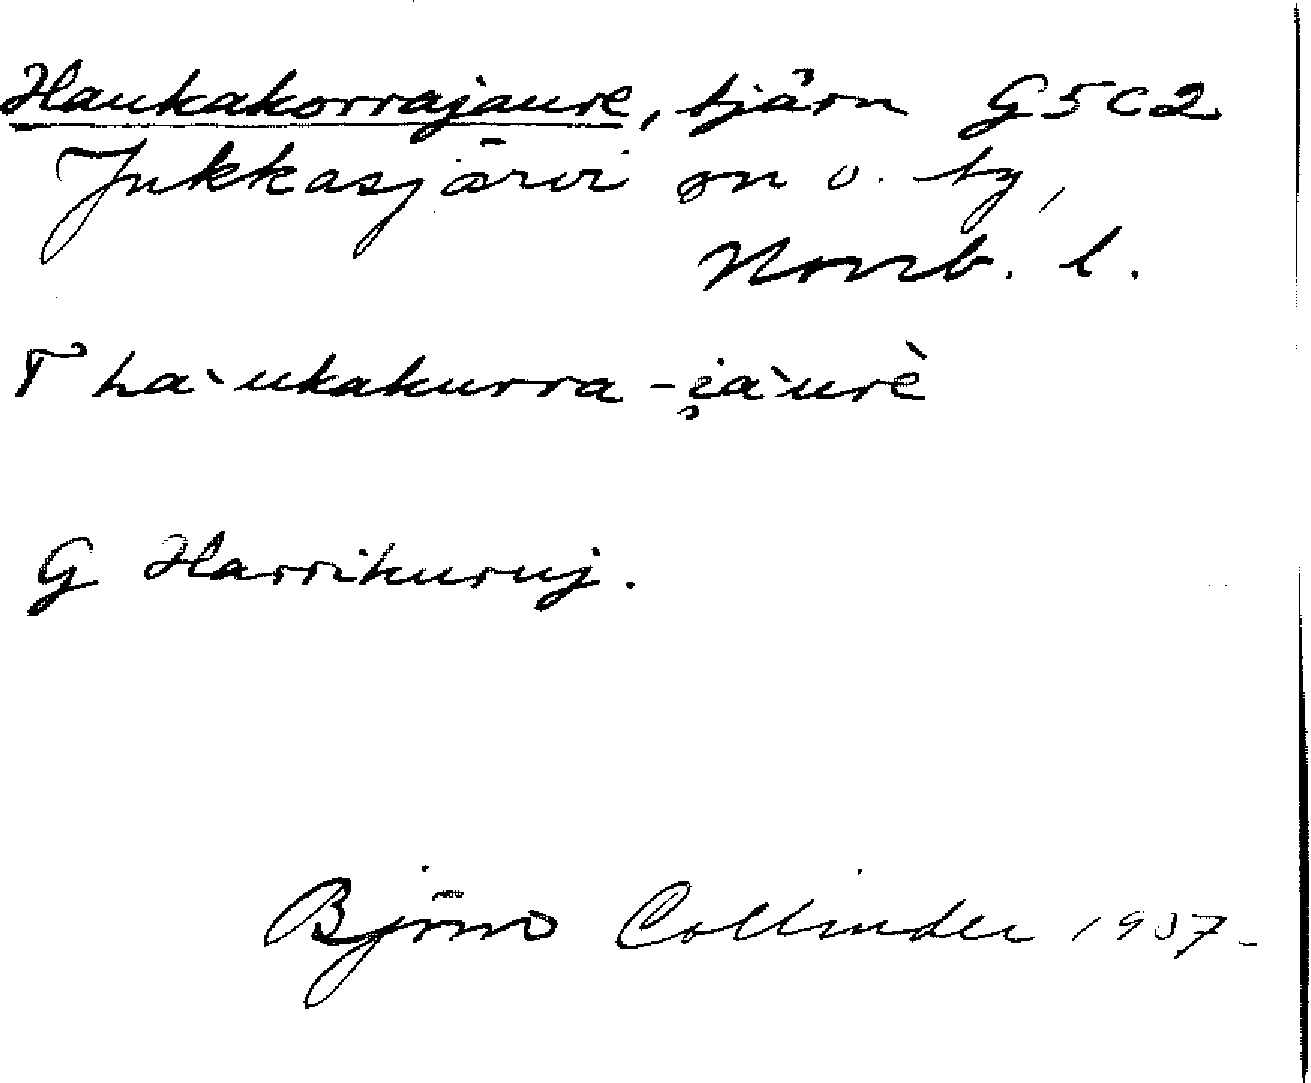 Haukakorrajaure, tjärn G5c2
Jukkasjärvi sn o. by,
Norrb. l.
T ha`ukakurra-i̯a`urè
G Harrikuruj.
Björn Collinder 1937-